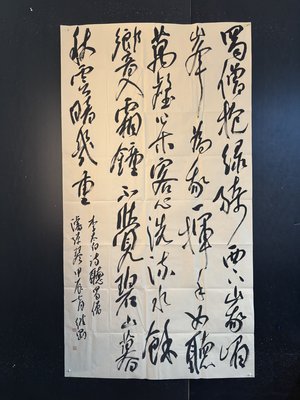 蜀僧抱綠綺西下峨嵋
峰為我一揮手如聽
萬壑松客心洗流水餘
響入霜鍾不覺碧山暮
秋雲暗幾重
李太白詩聽蜀僧
濬彈琴甲辰